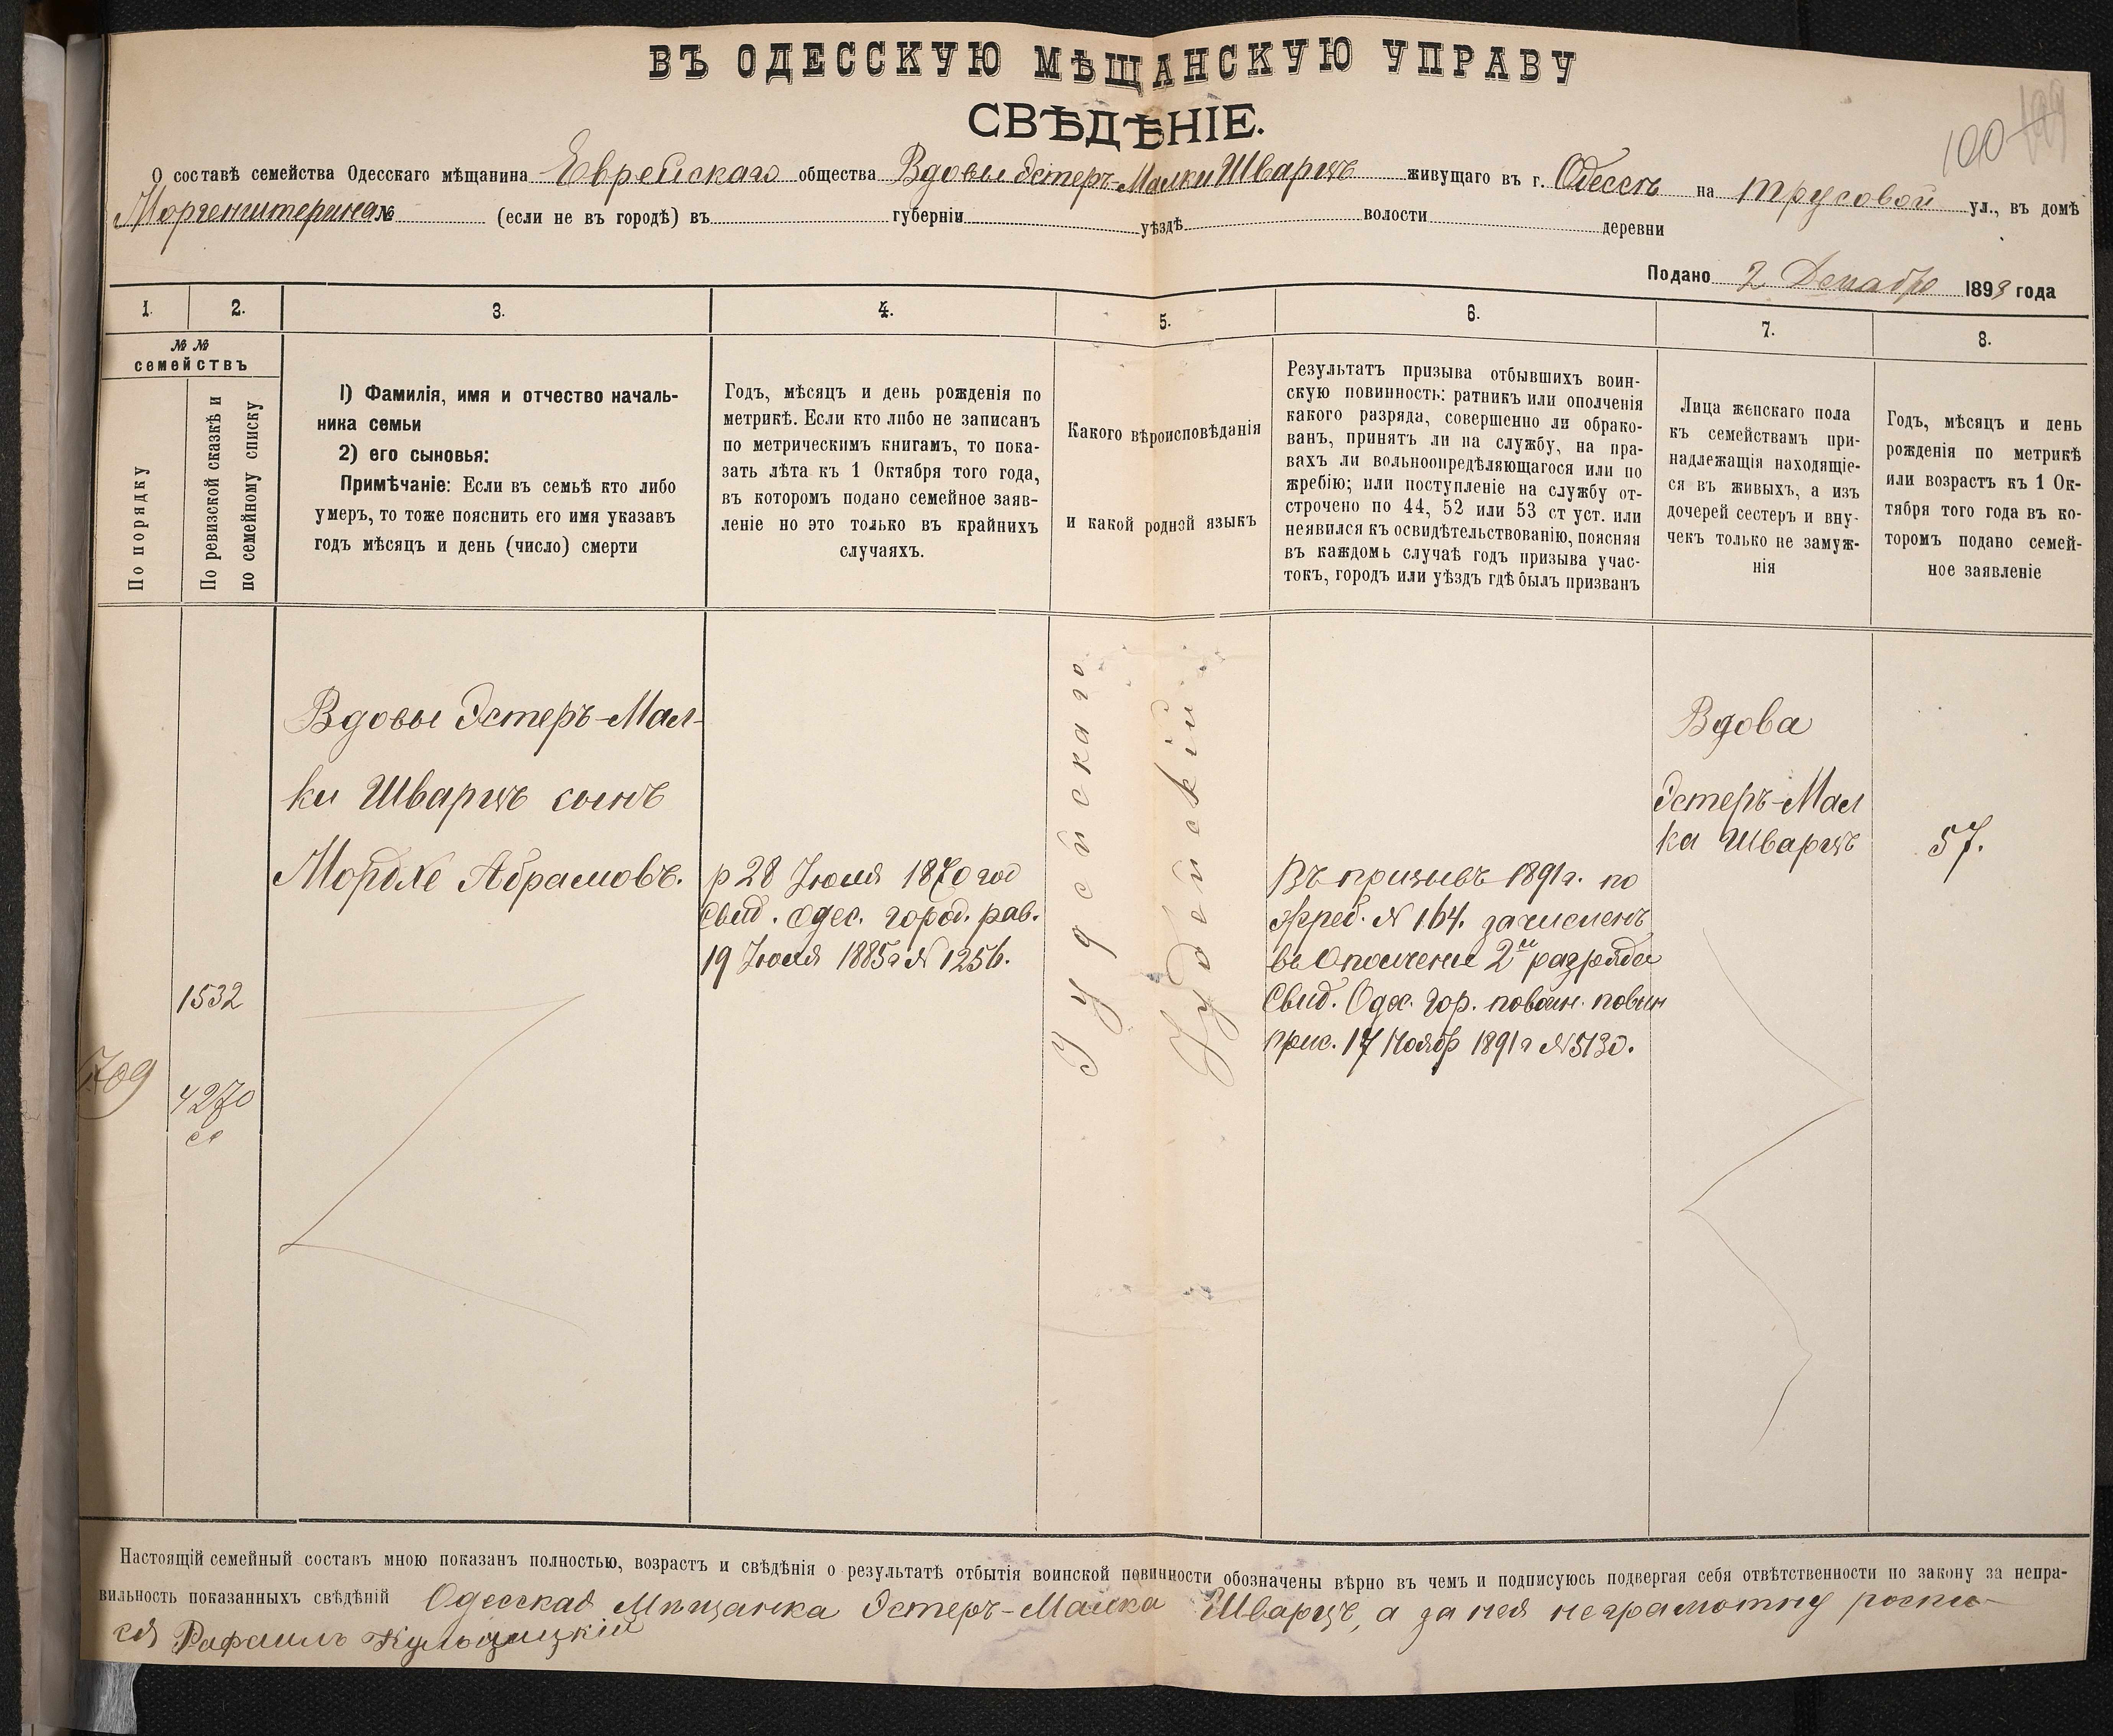 ВЪ ОДЕССКУЮ МѢЩАНСКУЮ УПРАВУ
СВѢДѢНІЕ.
100 199
О составѣ семейства Одесскаго мѣщанина Еврейскаго общества Вдовы Эстеръ-Малки Шварцъ живущаго въ г. Одессѣ на Трусовой ул., въ домѣ
Моргенштерина № (если не въ городѣ) въ губерніи уѣздѣ волости деревни
Подано 2 Декабр 1893 года
1. 2. 3. 4. 5. 6. 7. 8.
№ №
семействъ
По порядку
По ревизской сказкѣ и
по семейному списку
1) Фамилія, имя и отчество началь-
ника семьи
2) его сыновья:
Примѣчаніе: Если въ семьѣ кто либо
умеръ, то тоже пояснить его имя указавъ
годъ мѣсяцъ и день (число) смерти
Годъ, мѣсяцъ и день рожденія по
метрикѣ. Если кто либо не записанъ
по метрическимъ книгамъ, то пока-
зать лѣта къ 1 Октября того года,
въ которомъ подано семейное заяв-
леніе но это только въ крайнихъ
случаяхъ.
Какого вѣроисповѣданія
и какой родной языкъ
Результатъ призыва отбывшихъ воин-
скую повинность: ратникъ или ополченія
какого разряда, совершенно ли обрако-
ванъ, принятъ ли на службу, на пра-
вахъ ли вольноопредѣляющагося или по
жребію; или поступленіе на службу от-
строчено по 44, 52 или 53 ст уст. или
неявился къ освидѣтельствованію, поясняя
въ каждомъ случаѣ годъ призыва учас-
токъ, городъ или уѣздъ гдѣ былъ призванъ
Лица женскаго пола
къ семействамъ при-
надлежащія находящіе-
ся въ живыхъ, а изъ
дочерей сестеръ и вну-
чекъ только не замуж-
нія
Годъ, мѣсяцъ и день
рожденія по метрикѣ
или возрастъ къ 1 Ок-
тября того года въ ко-
торомъ подано семей-
ное заявленіе
709
1532
4270
сс
Вдовы Эстеръ-Мал-
ки Шварцъ сынъ
Мордхе Абрамовъ.
р 28 Іюля 1870 год
Свид. Одес. город. рав.
19 Іюля 1885 г № 1256.
Іудейскаго
Іудейскій
Въ призывъ 1891 г. по
жреб. № 164. зачисленъ
въ Ополченіе 2го разряда
Свид. Одес. гор. по воин. повин
прис. 17 Ноябр 1891 г № 5130.
Вдова
Эстеръ-Мал
ка Шварцъ
57.
Настоящій семейный составъ мною показанъ полностью, возрастъ и свѣдѣнія о результатѣ отбытія воинской повинности обозначены вѣрно въ чемъ и подписуюсь подвергая себя отвѣтственности по закону за непра-
вильность показанныхъ свѣдѣній Одесская Мѣщанка Эстеръ-Малка Шварцъ, а за нея неграмотну роспи-
ся Рафаилъ Кульчицкій